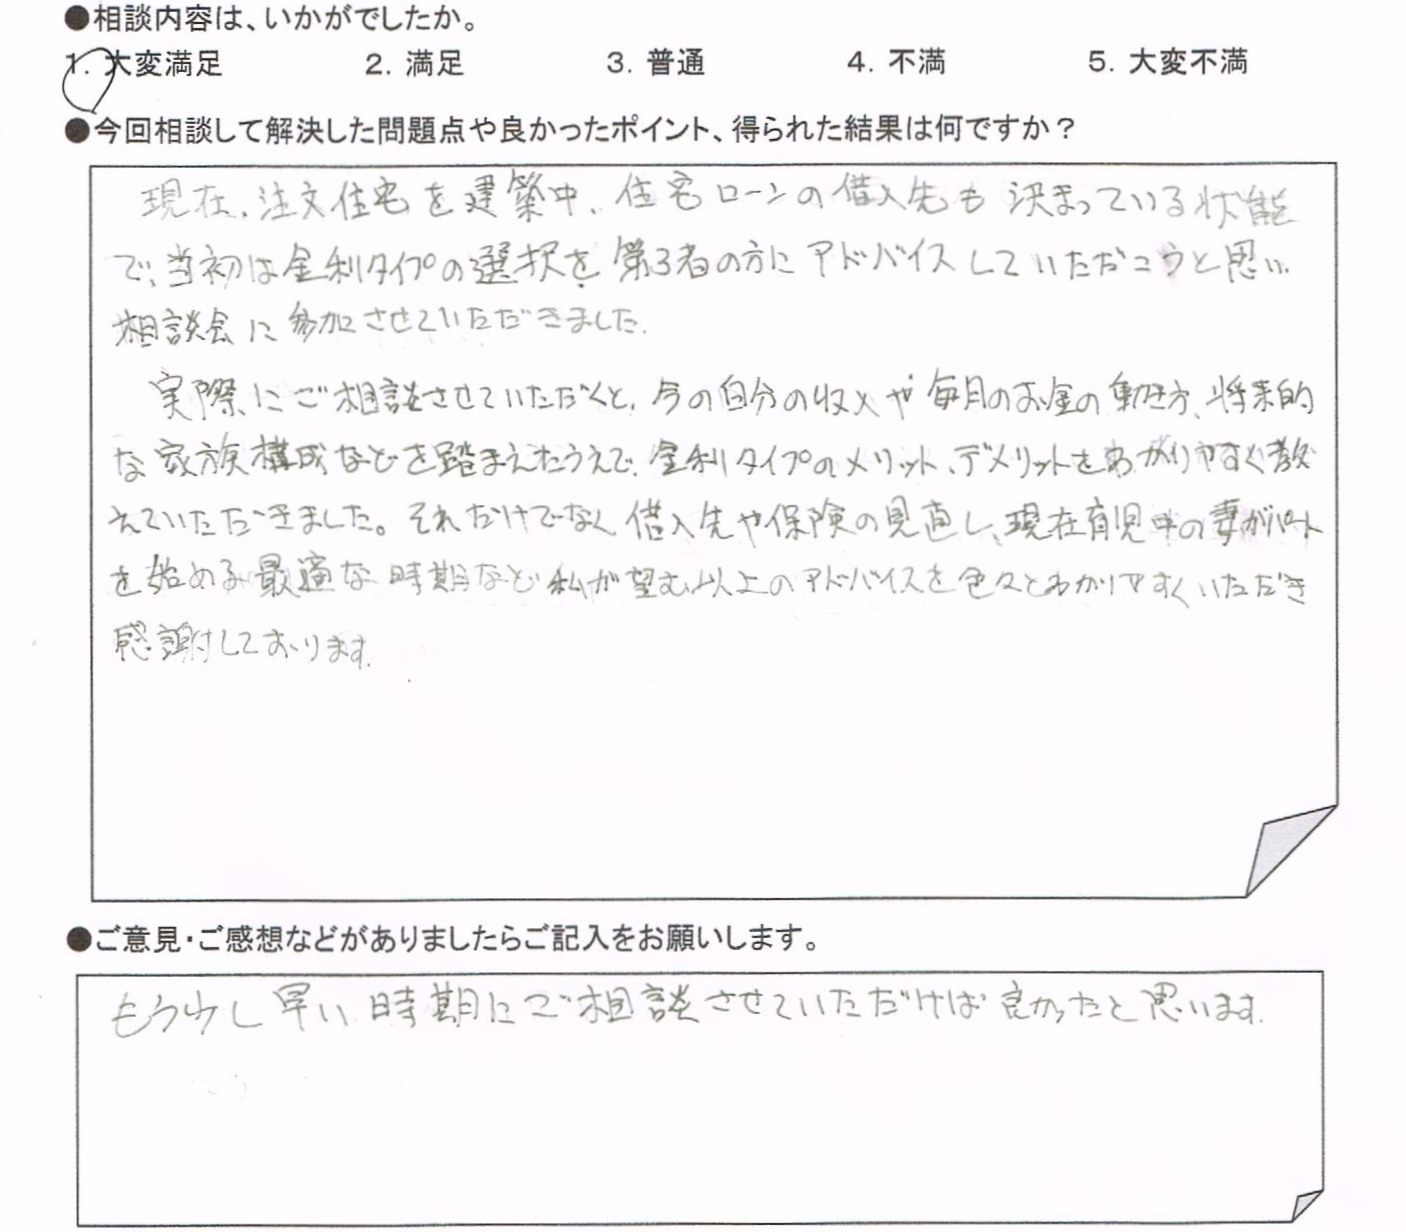 ●相談内容は、いかがでしたか。
1. 大変満足 2. 満足 3. 普通 4. 不満 5. 大変不満
●今回相談して解決した問題点や良かったポイント、得られた結果は何ですか？
現在、注文住宅を建築中、住宅ローンの借入先も決まっている状態
で、当初は金利タイプの選択を第3者の方にアドバイスしていただこうと思い、
相談会に参加させていただきました。
実際にご相談させていただくと、今の自分の収入や毎月のお金の動き方、将来的
な家族構成などを踏まえたうえで、金利タイプのメリット、デメリットをわかりやすく教
えていただきました。それだけでなく借入先や保険の見直し、現在育児中の妻がパート
を始める最適な時期など私が望む以上のアドバイスを色々とわかりやすくいただき
感謝しております。
●ご意見・ご感想などがありましたらご記入をお願いします。
もう少し早い時期にご相談させていただければ良かったと思います。